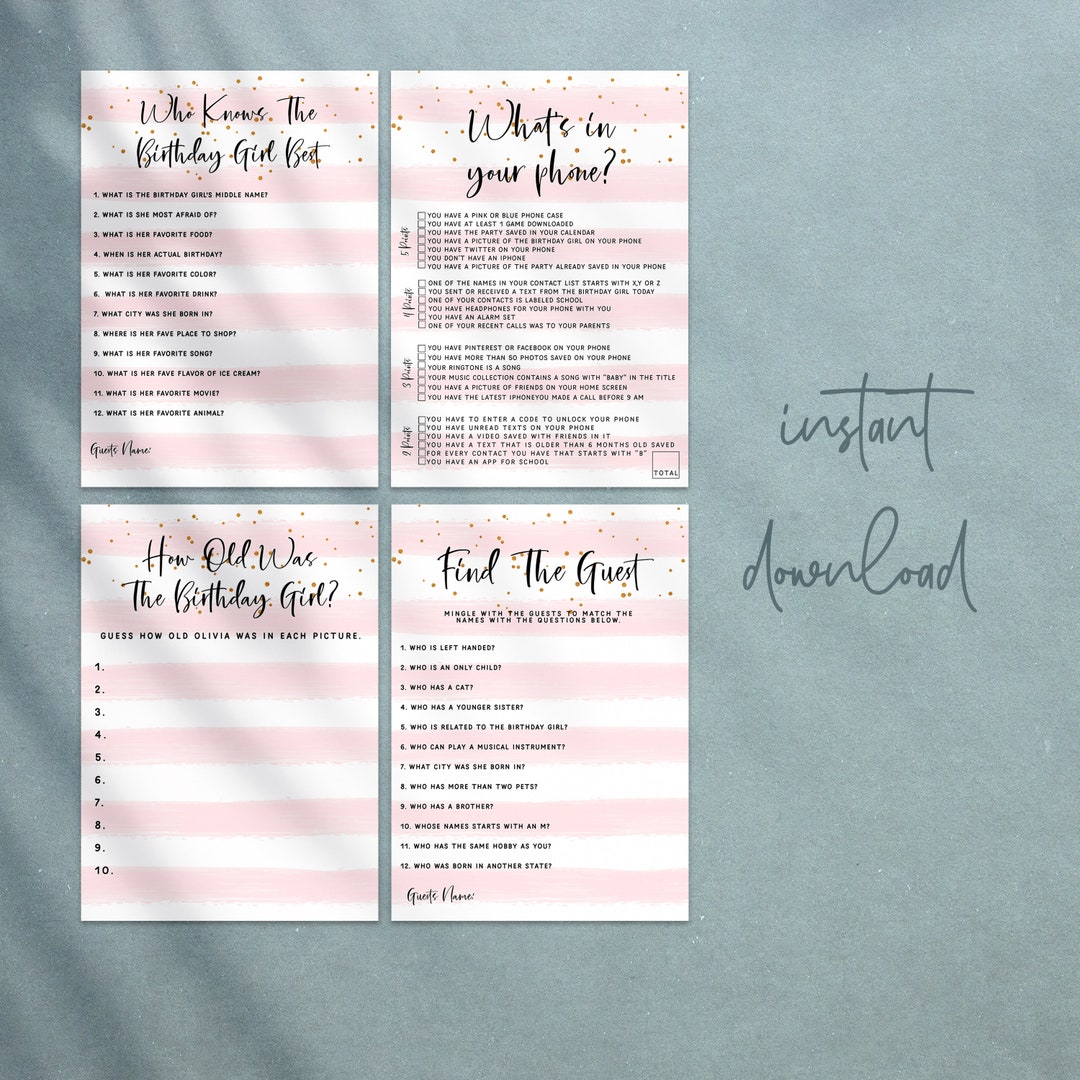 Who Knows The
Birthday Girl Best
1. WHAT IS THE BIRTHDAY GIRL'S MIDDLE NAME?
2. WHAT IS SHE MOST AFRAID OF?
3. WHAT IS HER FAVORITE FOOD?
4. WHEN IS HER ACTUAL BIRTHDAY?
5. WHAT IS HER FAVORITE COLOR?
6. WHAT IS HER FAVORITE DRINK?
7. WHAT CITY WAS SHE BORN IN?
8. WHERE IS HER FAVE PLACE TO SHOP?
9. WHAT IS HER FAVORITE SONG?
10. WHAT IS HER FAVE FLAVOR OF ICE CREAM?
11. WHAT IS HER FAVORITE MOVIE?
12. WHAT IS HER FAVORITE ANIMAL?
Guests Name:
What's in
your phone?
5 Points
YOU HAVE A PINK OR BLUE PHONE CASE
YOU HAVE AT LEAST 1 GAME DOWNLOADED
YOU HAVE THE PARTY SAVED IN YOUR CALENDAR
YOU HAVE A PICTURE OF THE BIRTHDAY GIRL ON YOUR PHONE
YOU HAVE TWITTER ON YOUR PHONE
YOU DON'T HAVE AN IPHONE
YOU HAVE A PICTURE OF THE PARTY ALREADY SAVED IN YOUR PHONE
4 Points
ONE OF THE NAMES IN YOUR CONTACT LIST STARTS WITH X,Y OR Z
YOU SENT OR RECEIVED A TEXT FROM THE BIRTHDAY GIRL TODAY
ONE OF YOUR CONTACTS IS LABELED SCHOOL
YOU HAVE HEADPHONES FOR YOUR PHONE WITH YOU
YOU HAVE AN ALARM SET
ONE OF YOUR RECENT CALLS WAS TO YOUR PARENTS
3 Points
YOU HAVE PINTEREST OR FACEBOOK ON YOUR PHONE
YOU HAVE MORE THAN 50 PHOTOS SAVED ON YOUR PHONE
YOUR RINGTONE IS A SONG
YOUR MUSIC COLLECTION CONTAINS A SONG WITH "BABY" IN THE TITLE
YOU HAVE A PICTURE OF FRIENDS ON YOUR HOME SCREEN
YOU HAVE THE LATEST IPHONEYOU MADE A CALL BEFORE 9 AM
2 Points
YOU HAVE TO ENTER A CODE TO UNLOCK YOUR PHONE
YOU HAVE UNREAD TEXTS ON YOUR PHONE
YOU HAVE A VIDEO SAVED WITH FRIENDS IN IT
YOU HAVE A TEXT THAT IS OLDER THAN 6 MONTHS OLD SAVED
FOR EVERY CONTACT YOU HAVE THAT STARTS WITH "B"
YOU HAVE AN APP FOR SCHOOL
TOTAL
How Old Was
The Birthday Girl?
GUESS HOW OLD OLIVIA WAS IN EACH PICTURE.
1.
2.
3.
4.
5.
6.
7.
8.
9.
10.
Find The Guest
MINGLE WITH THE GUESTS TO MATCH THE
NAMES WITH THE QUESTIONS BELOW.
1. WHO IS LEFT HANDED?
2. WHO IS AN ONLY CHILD?
3. WHO HAS A CAT?
4. WHO HAS A YOUNGER SISTER?
5. WHO IS RELATED TO THE BIRTHDAY GIRL?
6. WHO CAN PLAY A MUSICAL INSTRUMENT?
7. WHAT CITY WAS SHE BORN IN?
8. WHO HAS MORE THAN TWO PETS?
9. WHO HAS A BROTHER?
10. WHOSE NAMES STARTS WITH AN M?
11. WHO HAS THE SAME HOBBY AS YOU?
12. WHO WAS BORN IN ANOTHER STATE?
Guests Name:
instant
download